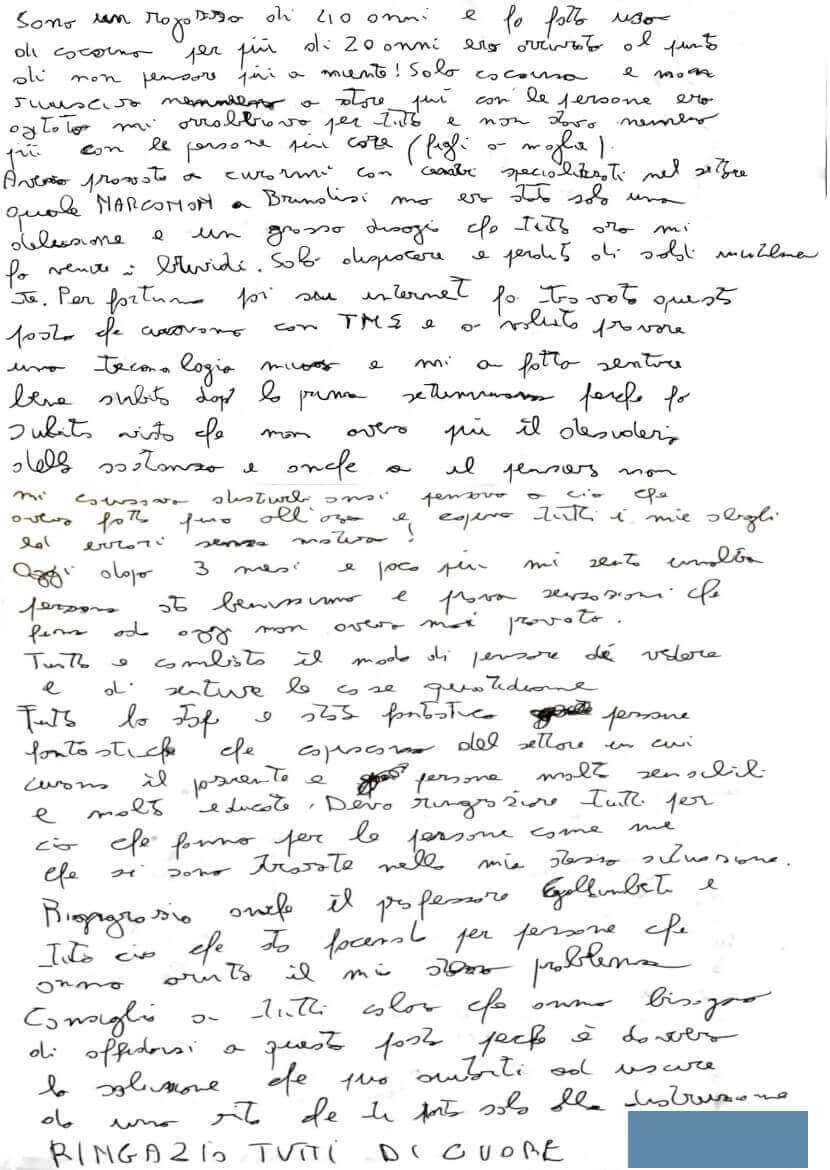 Sono un ragazzo di 40 anni e ho fatto uso
di cocaina per più di 20 anni ero arrivato al punto
di non pensare più a niente! Solo cocaina e non
riuscivo nemmeno a stare più con le persone ero
agitato mi arrabbiavo per tutto e non stavo nemeno
più con le persone più care (figli o moglie).
Avevo provato a curarmi con centri specializzati nel settore
quale NARCONON a Brindisi ma ero stato solo una
delusione e un grosso disagio che tutt ora mi
fa venire i brividi. Solo dispiacere e perdita di soldi inutilmen
te. Per fortuna poi su internet ho trovato questo
posto che curavano con TMS e o voluto provare
una tecnologia nuova e mi a fatto sentire
bene subito dopo la prima settimana perche ho
subito visto che non avevo più il desiderio
della sostanza e anche a il pensare non
mi causava disturbi anzi pensavo a cio che
avevo fatto fino all'ora e capivo tutti i mie sbagli
ed errori senza motivo!
Oggi dopo 3 mesi e poco più mi sento un'altra
persona sto benissimo e provo sensazioni che
fino ad oggi non avevo mai provato.
Tutto e cambiato il modo di pensare di vedere
e di sentire le cose quotidiane
Tutto lo staf e stato fantastico persone
fantastiche che capiscono del settore in cui
curano il paziente e persone molto sensibili
e molto educate. Devo ringraziare tutti per
cio che fanno per le persone come me
che si sono trovate nella mia stessa situazione.
Ringrazio anche il professore Gallimberti e
tutto cio che sta facendo per persone che
anno avuto il mio stesso problema
Consiglio a tutti coloro che anno bisogno
di affidarsi a questo posto perche è davvero
la soluzione che può aiutarti ad uscire
da una vita che ti porta solo alla distruzione
RINGAZIO TUTTI DI CUORE